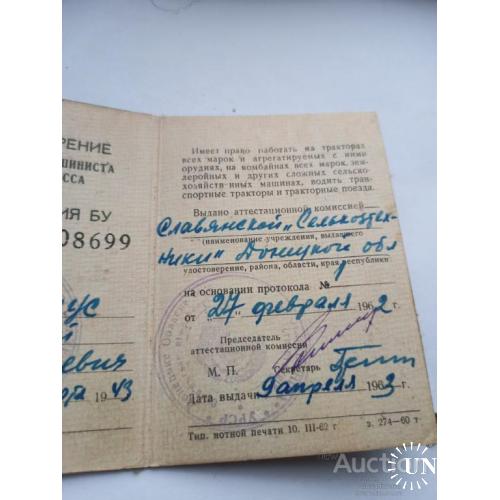 РЕНИЕ
ШИНИСТА
ССА
ИЯ БУ
08699
УС
Й
евич
19 43
Имеет право работать на тракторах
всех марок и агрегатируемых с ними
орудиях, на комбайнах всех марок, зем-
леройных и других сложных сельско-
хозяйственных машинах, водить тран-
спортные тракторы и тракторные поезда.
Выдано аттестационной комиссией
Славянской „Сельхозтех-
(наименование учреждения, выдавшего
ники" Донецкой обл
удостоверение, района, области, края, республики
на основании протокола № 1
от „27" февраля 1962 г.
Председатель
аттестационной комиссии
М. П. Секретарь
Дата выдачи 9 апреля 1963 г.
УРСР
Тип. нотной печати 10. III-62 г. з. 274—60 т.
Аукціон
UN